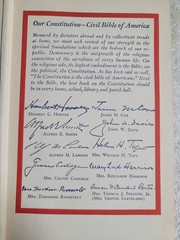 Our Constitution—Civil Bible of America
Menaced by dictators abroad and by collectivist trends
at home, we must seek revival of our strength in the
spiritual foundations which are the bedrock of our re-
public. Democracy is the outgrowth of the religious
conviction of the sacredness of every human life. On
the religious side, its highest embodiment is the Bible; on
the political, the Constitution. As has been said so well,
"The Constitution is the civil bible of America." Next to
the Bible, the best book on the Constitution should
be in every home, school, library and parish hall.
Herbert Hoover James M. Cox
HERBERT C. HOOVER JAMES M. COX
Alfred E. Smith John W. Davis
ALFRED E. SMITH JOHN W. DAVIS
Alf M. Landon Helen H. Taft
ALFRED M. LANDON MRS. WILLIAM H. TAFT
Grace Coolidge Mary Lord Harrison
MRS. CALVIN COOLIDGE MRS. BENJAMIN HARRISON
MRS. THEODORE ROOSEVELT
MRS. THOMAS J. PRESTON, JR.
(MRS. GROVER CLEVELAND)